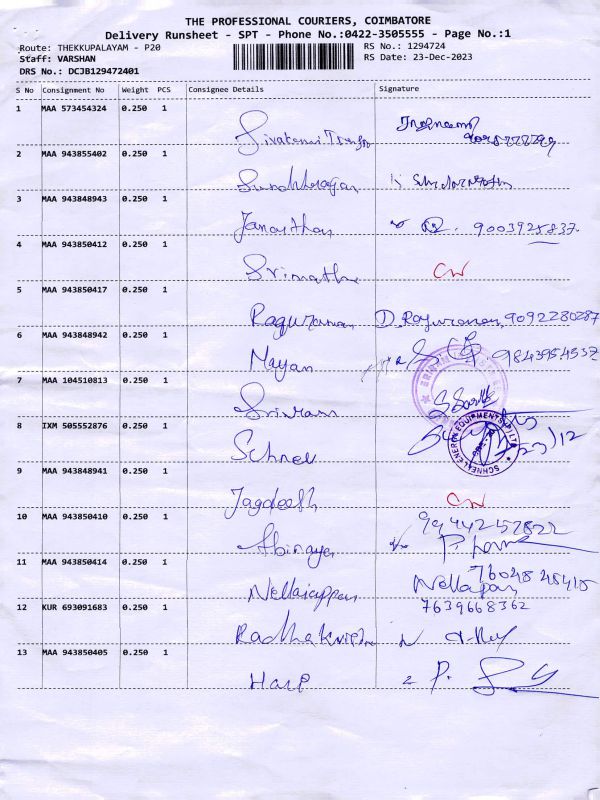 THE PROFESSIONAL COURIERS, COIMBATORE
Delivery Runsheet - SPT - Phone No.:0422-3505555 - Page No.:1
Route: THEKKUPALAYAM - P20
RS No.: 1294724
Staff: VARSHAN
RS Date: 23-Dec-2023
DRS No.: DCJB129472401
S No Consignment No Weight PCS Consignee Details Signature
1 MAA 573454324 0.250 1
2 MAA 943855402 0.250 1
3 MAA 943848943 0.250 1
Janarthan 9003925837
4 MAA 943850412 0.250 1
Srimathi CW
5 MAA 943850417 0.250 1
Raguraman D. Raguraman, 9092280287
6 MAA 943848942 0.250 1
Mayan 9843954537
7 MAA 104510813 0.250 1
Sriram
8 IXM 505552876 0.250 1
Schnel 23/12
9 MAA 943848941 0.250 1
Jagdeesh CW
10 MAA 943850410 0.250 1
Abinaya
11 MAA 943850414 0.250 1
Nellaiappan
12 KUR 693091683 0.250 1 7639668362
Radhakrishna
13 MAA 943850405 0.250 1
Hari P.